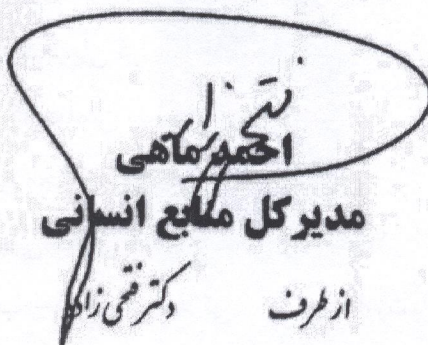 احمد ماهی
مدیرکل منابع انسانی
از طرف دکتر فتحی‌زاده